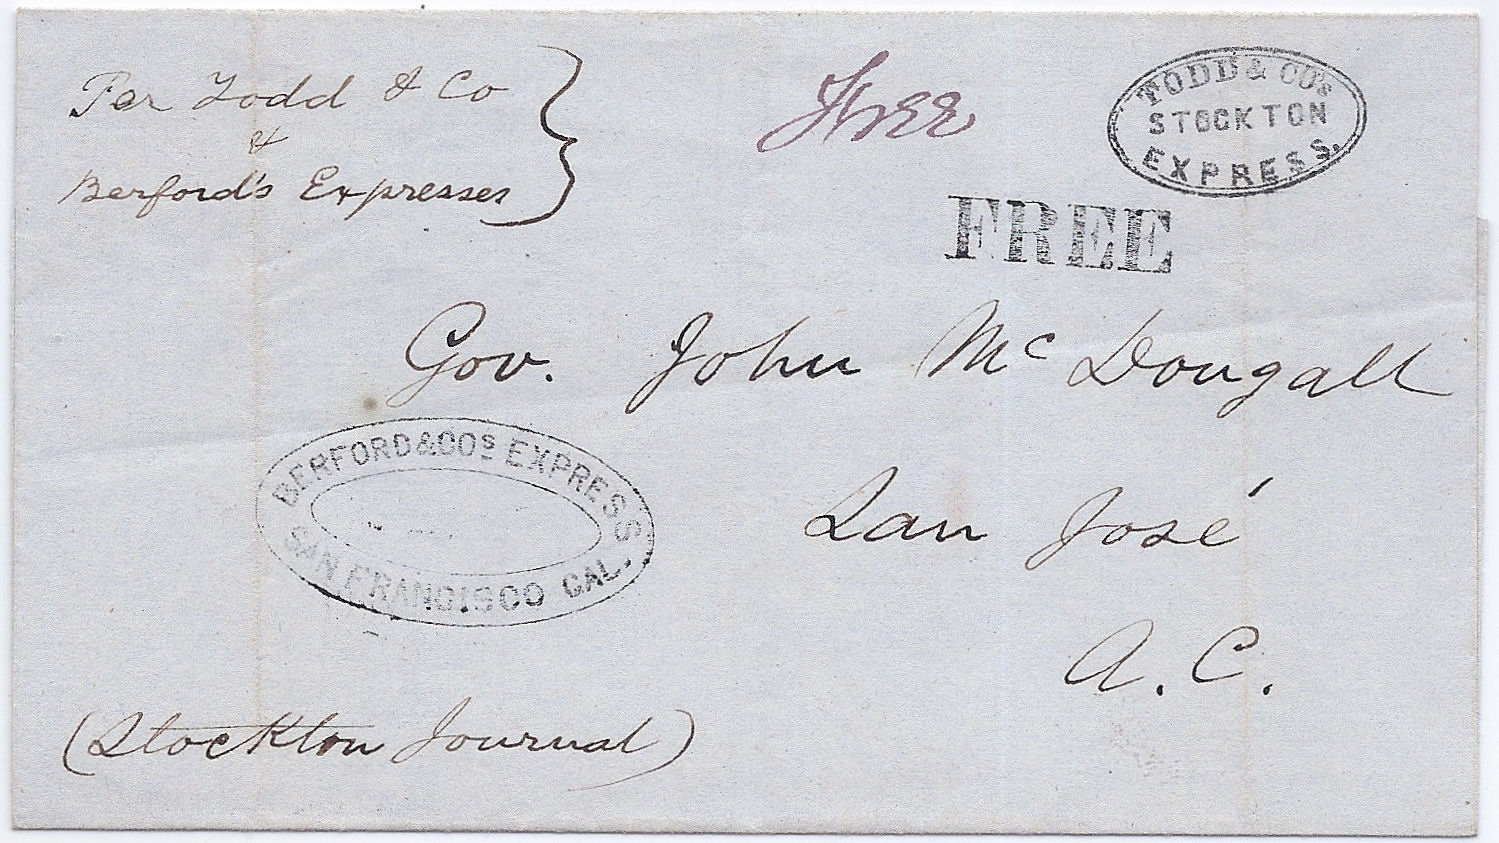 Per Todd & Co
&
Berford's Expresses
Free
TODD & CO'S
STOCKTON
EXPRESS.
FREE
Gov. John Mc Dougall
BERFORD & COS EXPRESS
SAN FRANCISCO CAL.
San José
A. C.
(Stockton Journal)